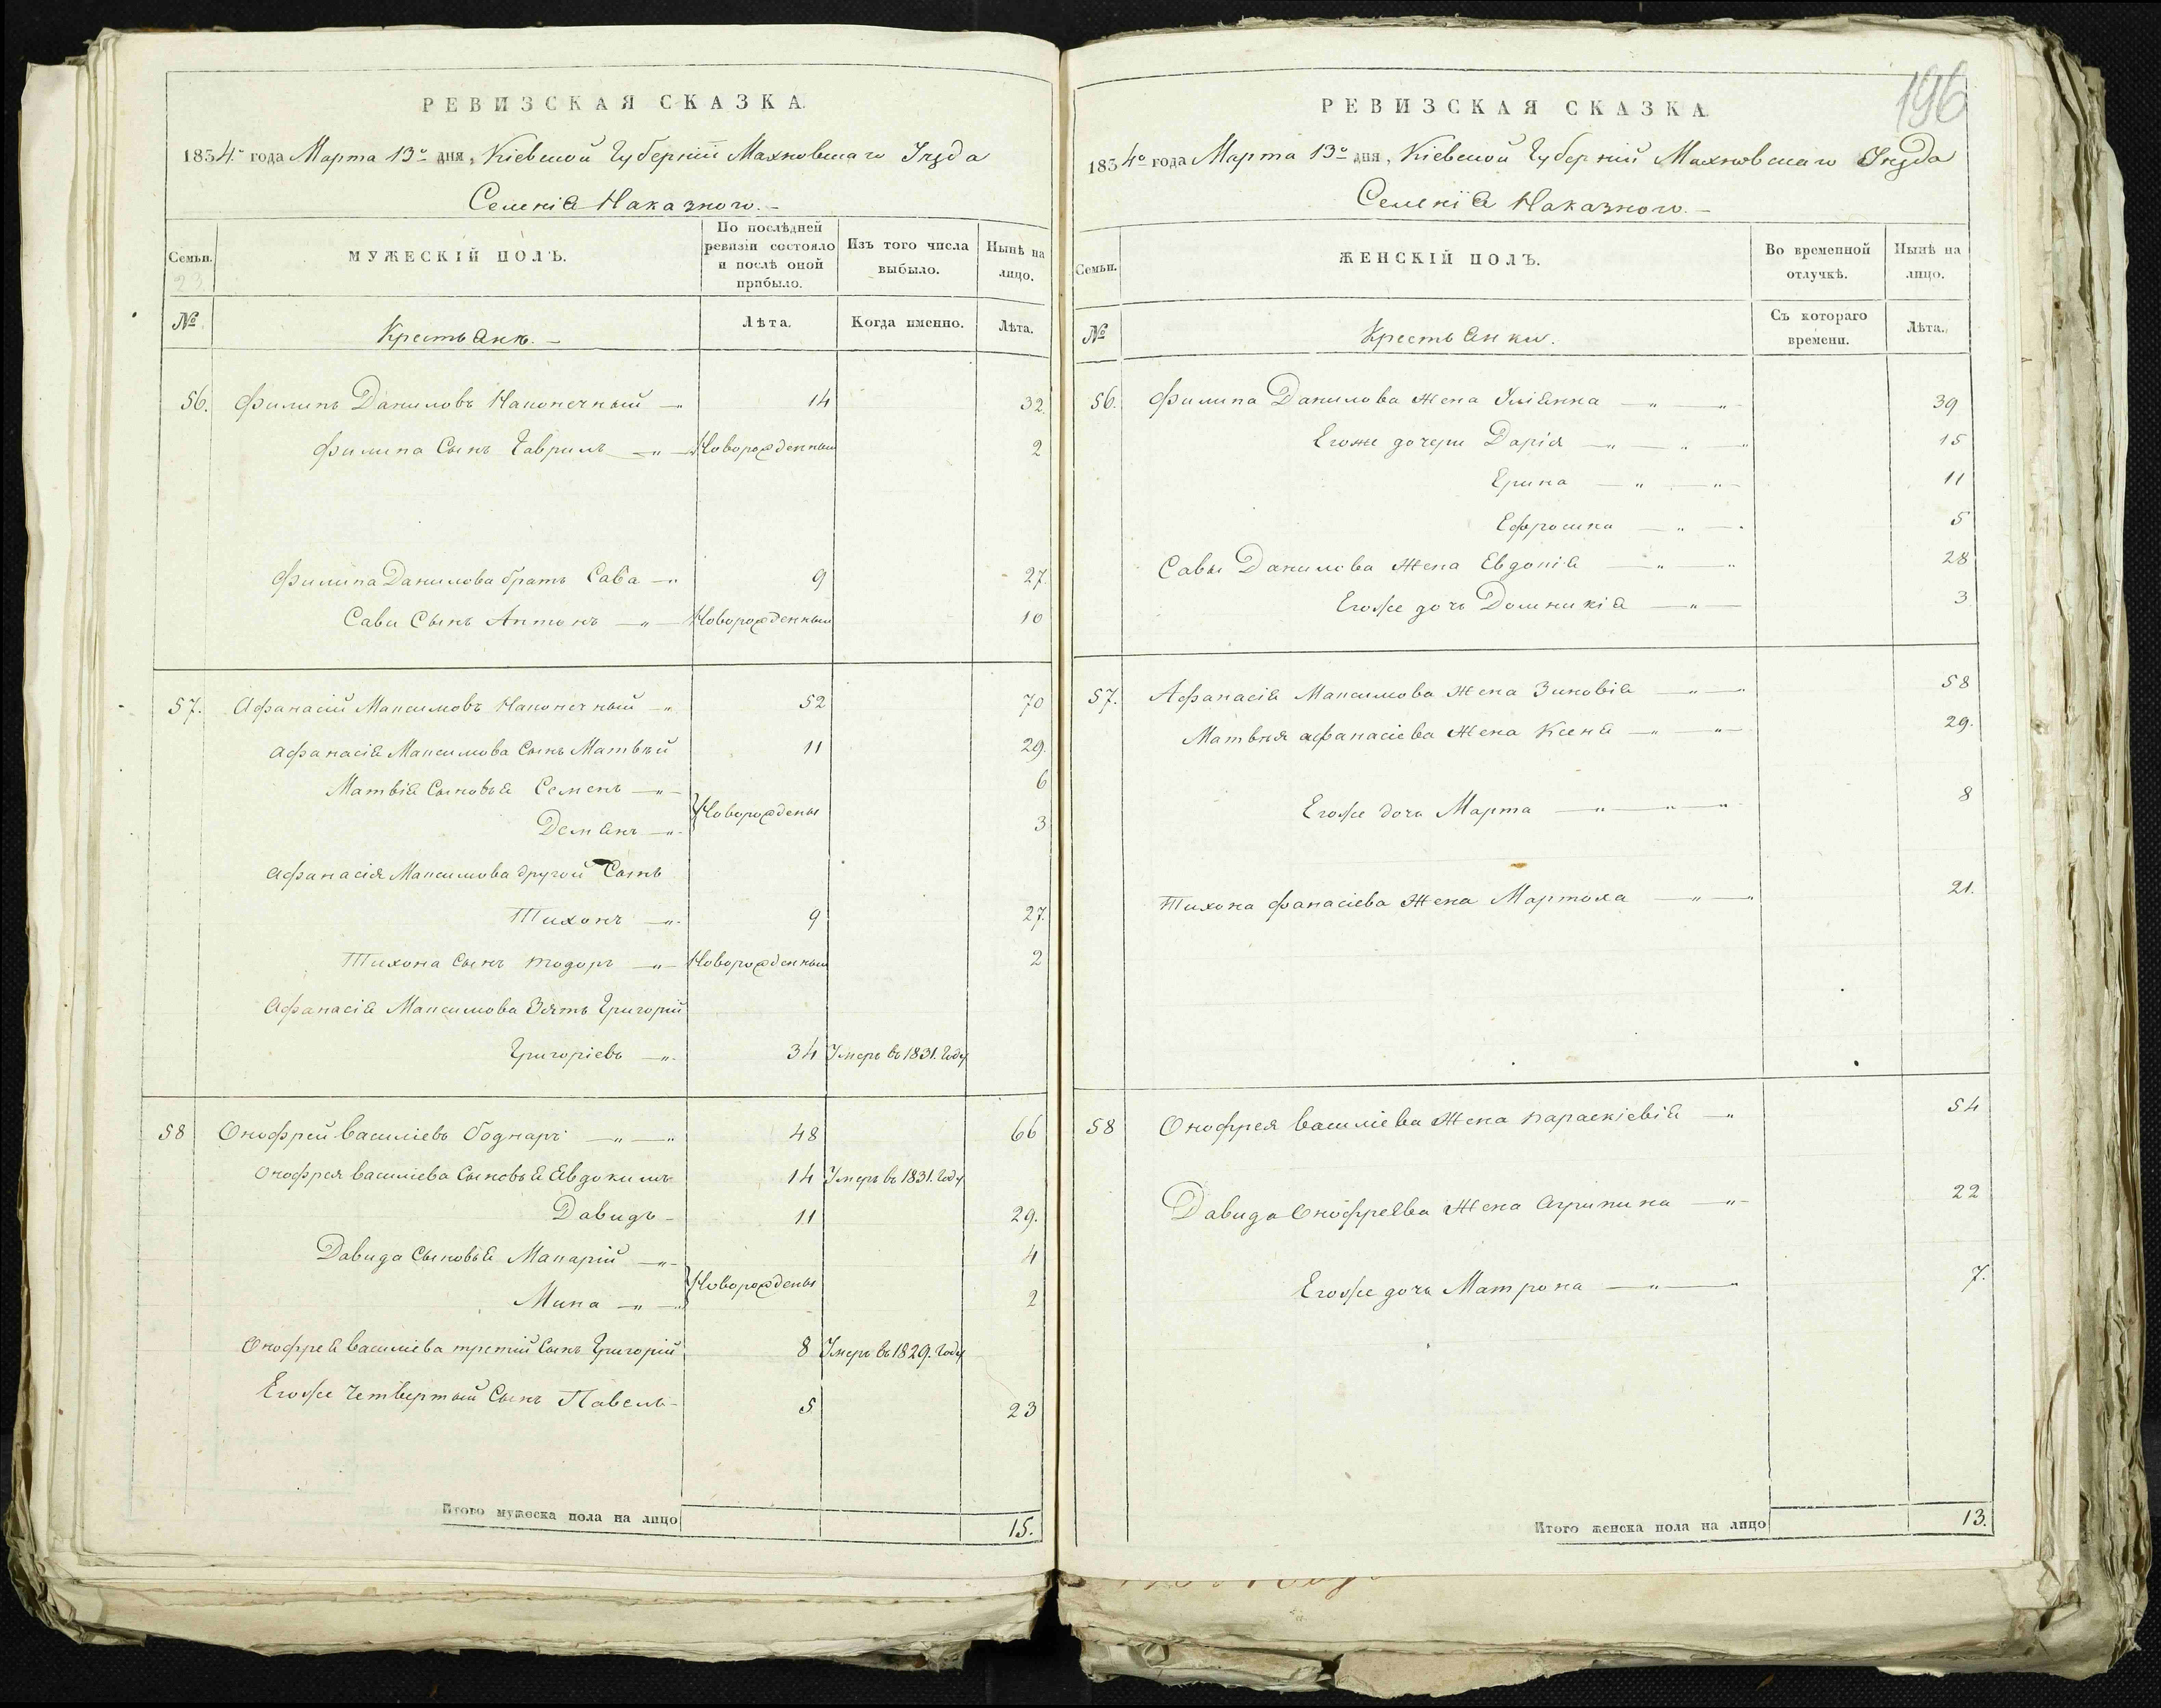 РЕВИЗСКАЯ СКАЗКА.
1834го года Марта 13о дня, Кіевской Губерніи Махновскаго Уѣзда
Селенія Наказного.
Семьи.
МУЖЕСКІЙ ПОЛЪ.
По послѣдней ревизіи состояло и послѣ оной прибыло.
Изъ того числа выбыло.
Нынѣ на лицо.
23
№
Крестьянъ.
Лѣта.
Когда именно.
Лѣта.
56. Филипъ Даниловъ Наконечный 14 32.
Филипа Сынъ Гаврилъ Новорожденный 2
Филипа Данилова братъ Сава 9 27.
Савы Сынъ Антонъ Новорожденный 10
57. Афанасій Максимовъ Наконечный 52 70
Афанасія Максимова Сынъ Матвѣй 11 29.
Матвія Сыновья Семенъ 6
Новорождены
Демянъ 3
Афанасія Максимова другой Сынъ
Тихонъ 9 27.
Тихона Сынъ Тодоръ Новорожденный 2
Афанасія Максимова Зять Григорій
Григоріевъ 34 Умеръ въ 1831. Году
58 Онофрей Василіевъ Боднаръ 48 66
Онофрея Василіева Сыновья Евдокимъ 14 Умеръ въ 1831. Году
Давидъ 11 29.
Давида Сыновья Макарій 4
Новорождены
Мина 2
Онофрея Василіева третій Сынъ Григорій 8 Умеръ въ 1829. Году
Егоже Четвертый Сынъ Павелъ 5 23
Итого мужеска пола на лицо 15.
196
РЕВИЗСКАЯ СКАЗКА.
1834го года Марта 13о дня, Кіевской Губерніи Махновскаго Уѣзда
Селенія Наказного.
Семьи.
ЖЕНСКІЙ ПОЛЪ.
Во временной отлучкѣ.
Нынѣ на лицо.
№
Крестьянки.
Съ котораго времени.
Лѣта.
56. Филипа Данилова Жена Уліянна 39
Егоже дочери Дарія 15
Ерина 11
Ефросина 5
Савы Данилова Жена Евдокія 28
Егоже дочь Домникія 3
57. Афанасія Максимова Жена Зиновія 58
Матвѣя Афанасіева Жена Ксеня 29.
Егоже дочь Марта 8
Тихона Фанасіева Жена Мартоха 21.
58 Онофрея Василіева Жена Параскіевія 54
Давида Онофреева Жена Агрипина 22
Егоже дочь Матрона 7.
Итого женска пола на лицо 13.